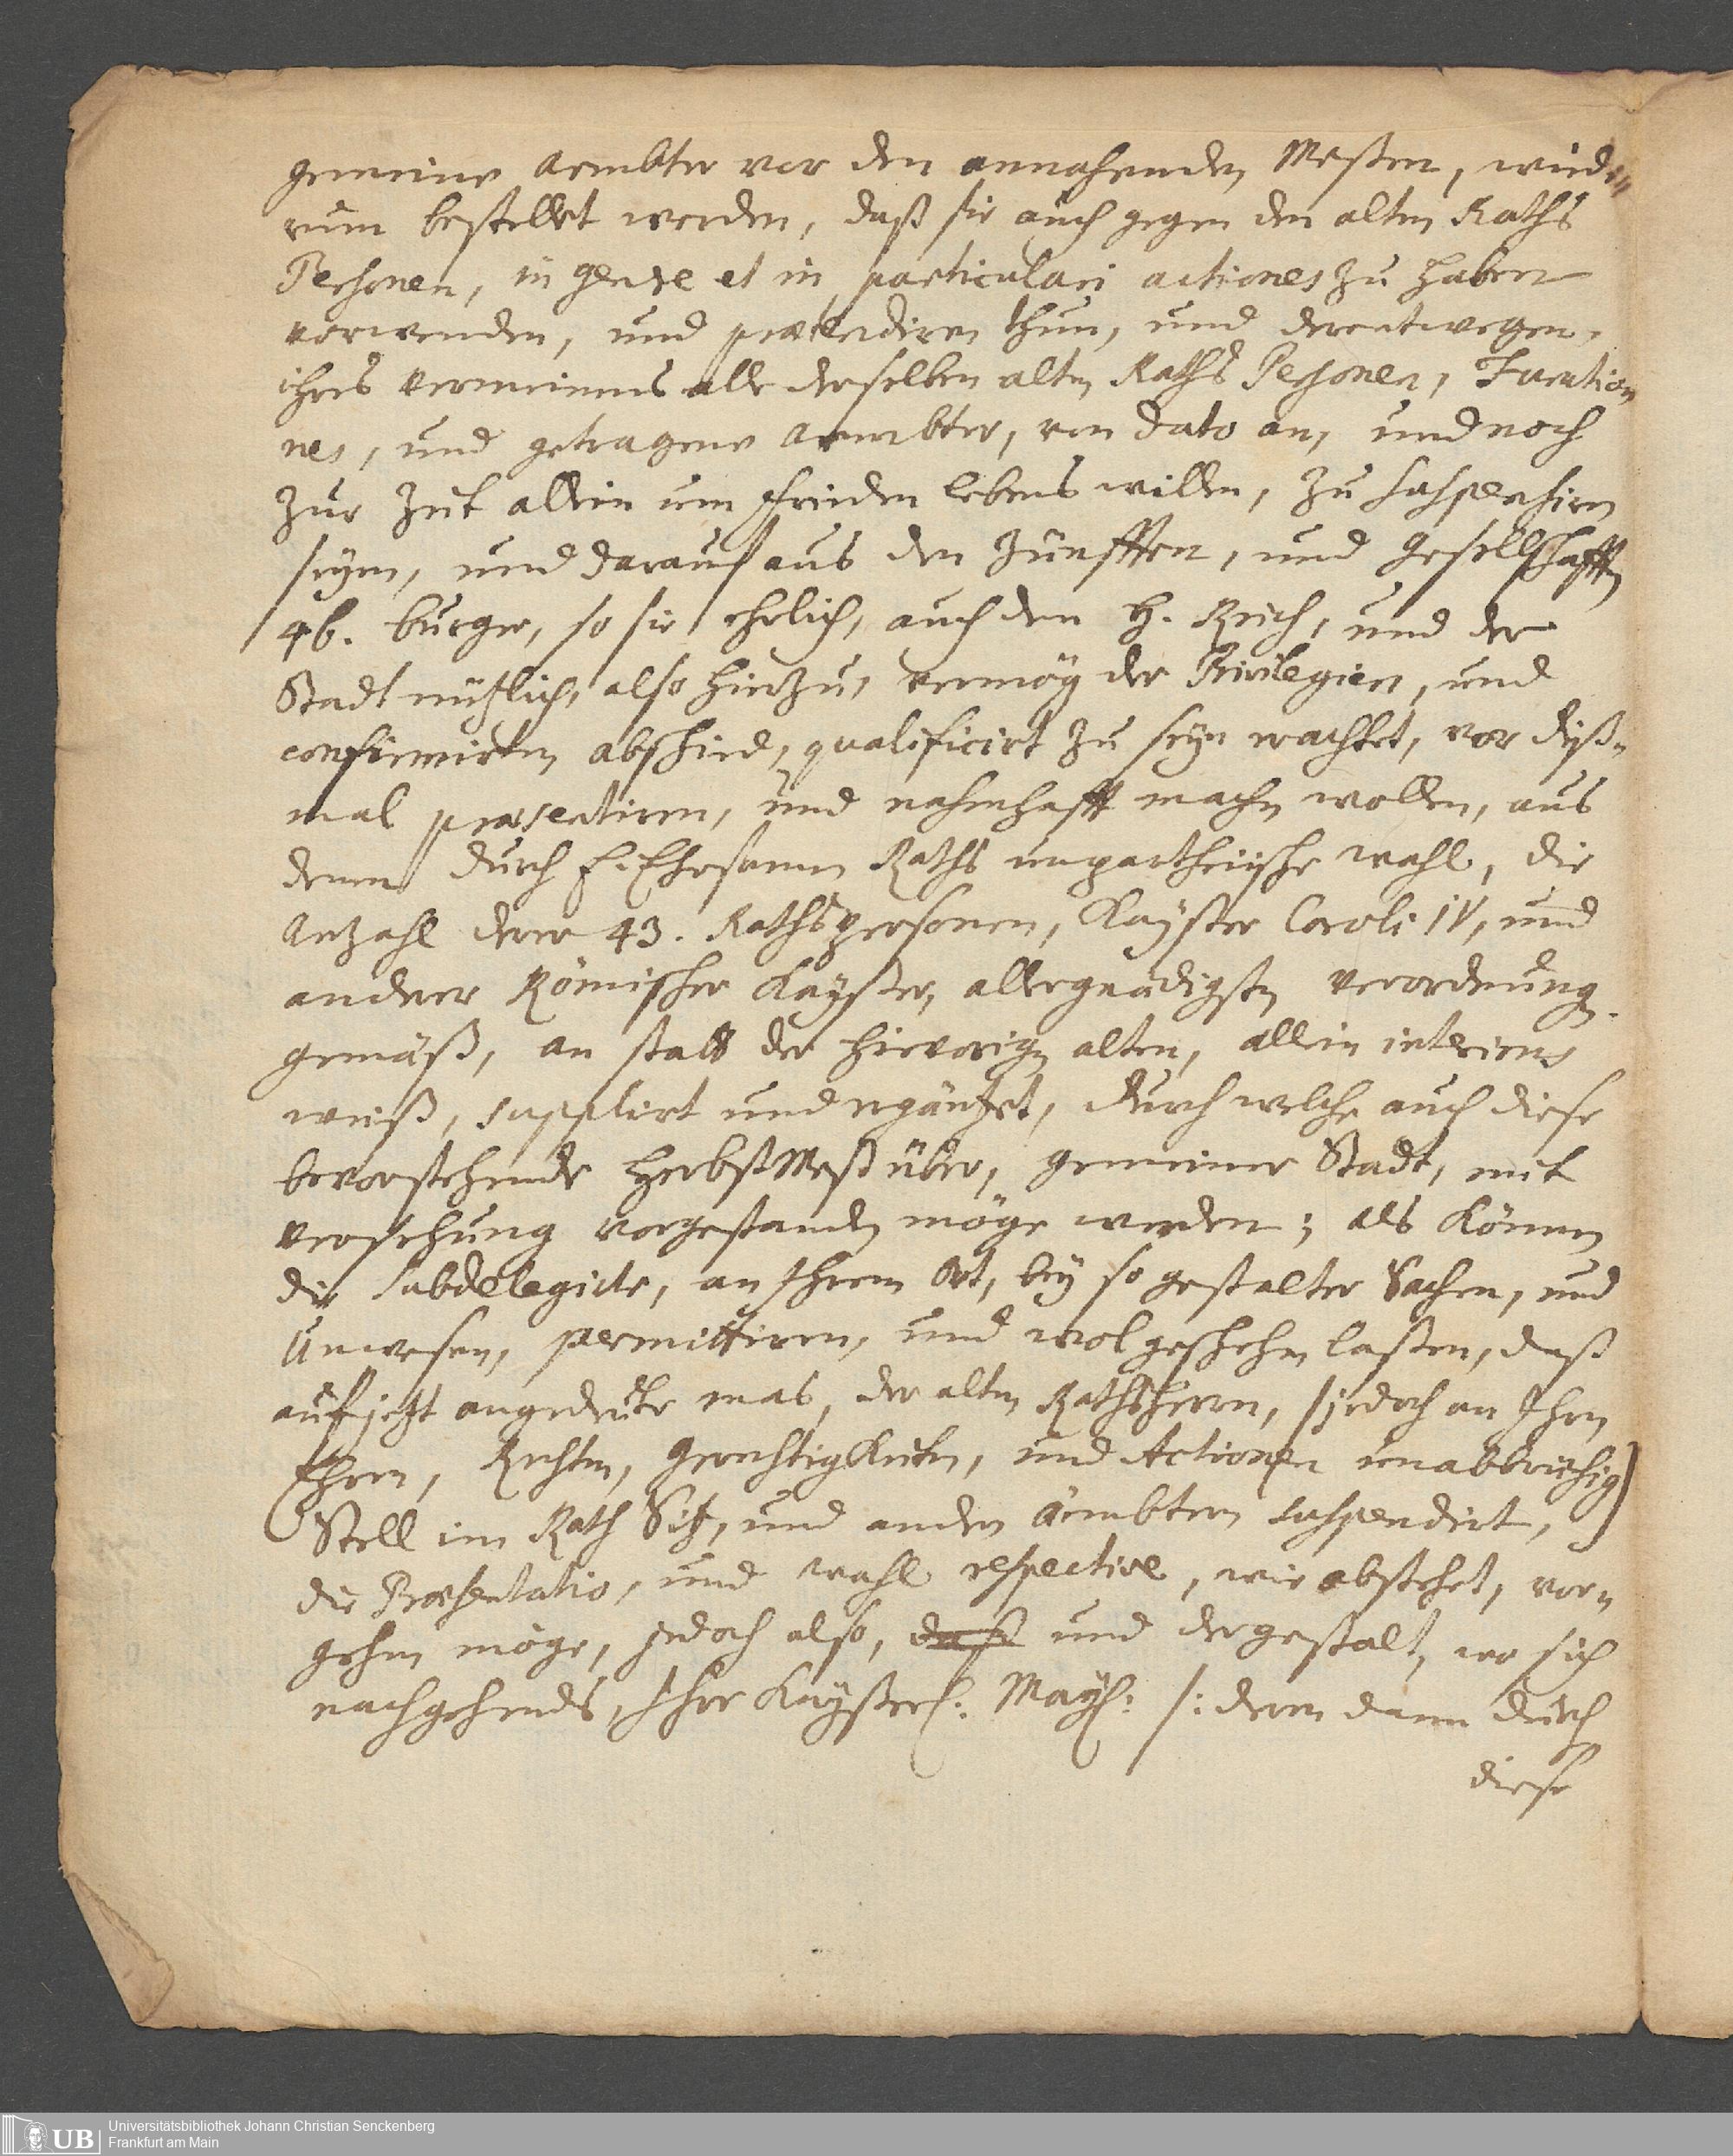 gemeine Aembter vor den annahenden Messen, wied=
rum bestellet werden, daß sie auch gegen den alten Raths
Personen, in genere et in particulari actiones zu haben
vorwenden, und prætendiren thun, und derentwegen,
ihres vermeinens alle derselben alten Raths Personen, Function
nes, und getragene Aembter, von dato an, und noch
zur Zeit allein um frieden lebens willen, zu suspendiren
seyen, und darauf aus den Zünfften, und Gesellschafften
46. burger, so sie ehrlich, auch dem H. Reich, und der
Stadt nützlich, also hierzu, vermög der Privilegien, und
confirmirten abschied, qualificirt zu seyn erachtet, vor diß=
mal præsentiren, und nahmhafft machen wollen, aus
denen durch E. Ehrsamen Raths unpartheiische wahl, die
Anzahl derer 43. Rathspersonen, Kayser Caroli IV, und
anderer Römischer Kayser, allergnädigsten verordnung
gemäß, an statt der hievorigen alten, allein interims
weiß, supplirt und ergäntzet, durch welche auch diese
bevorstehende HerbstMeß über, gemeiner Stadt, mit
versehung vorgestanden möge werden; als können
die Subdelegirte, an Ihrem Ort, bey so gestalter Sachen, und
Unwesen, permittiren, und wol geschehen lassen, daß
auf jetzt angedeute mas, der alten Rathsherren, (jedoch an Ihren
Ehren, Rechten, Gerechtigkeiten, und Actionen unabbrüchig)
Stell im Rath Sitz, und andern ämbtern suspendirt,
die Præsentatio, und wahl respective, wie obstehet, vor=
gehen möge, jedoch also, daß und dergestalt, wo sich
nachgehends, Ihre Kayserl. Mayt: /: deren dann durch
diese
Universitätsbibliothek Johann Christian Senckenberg
Frankfurt am Main
UB